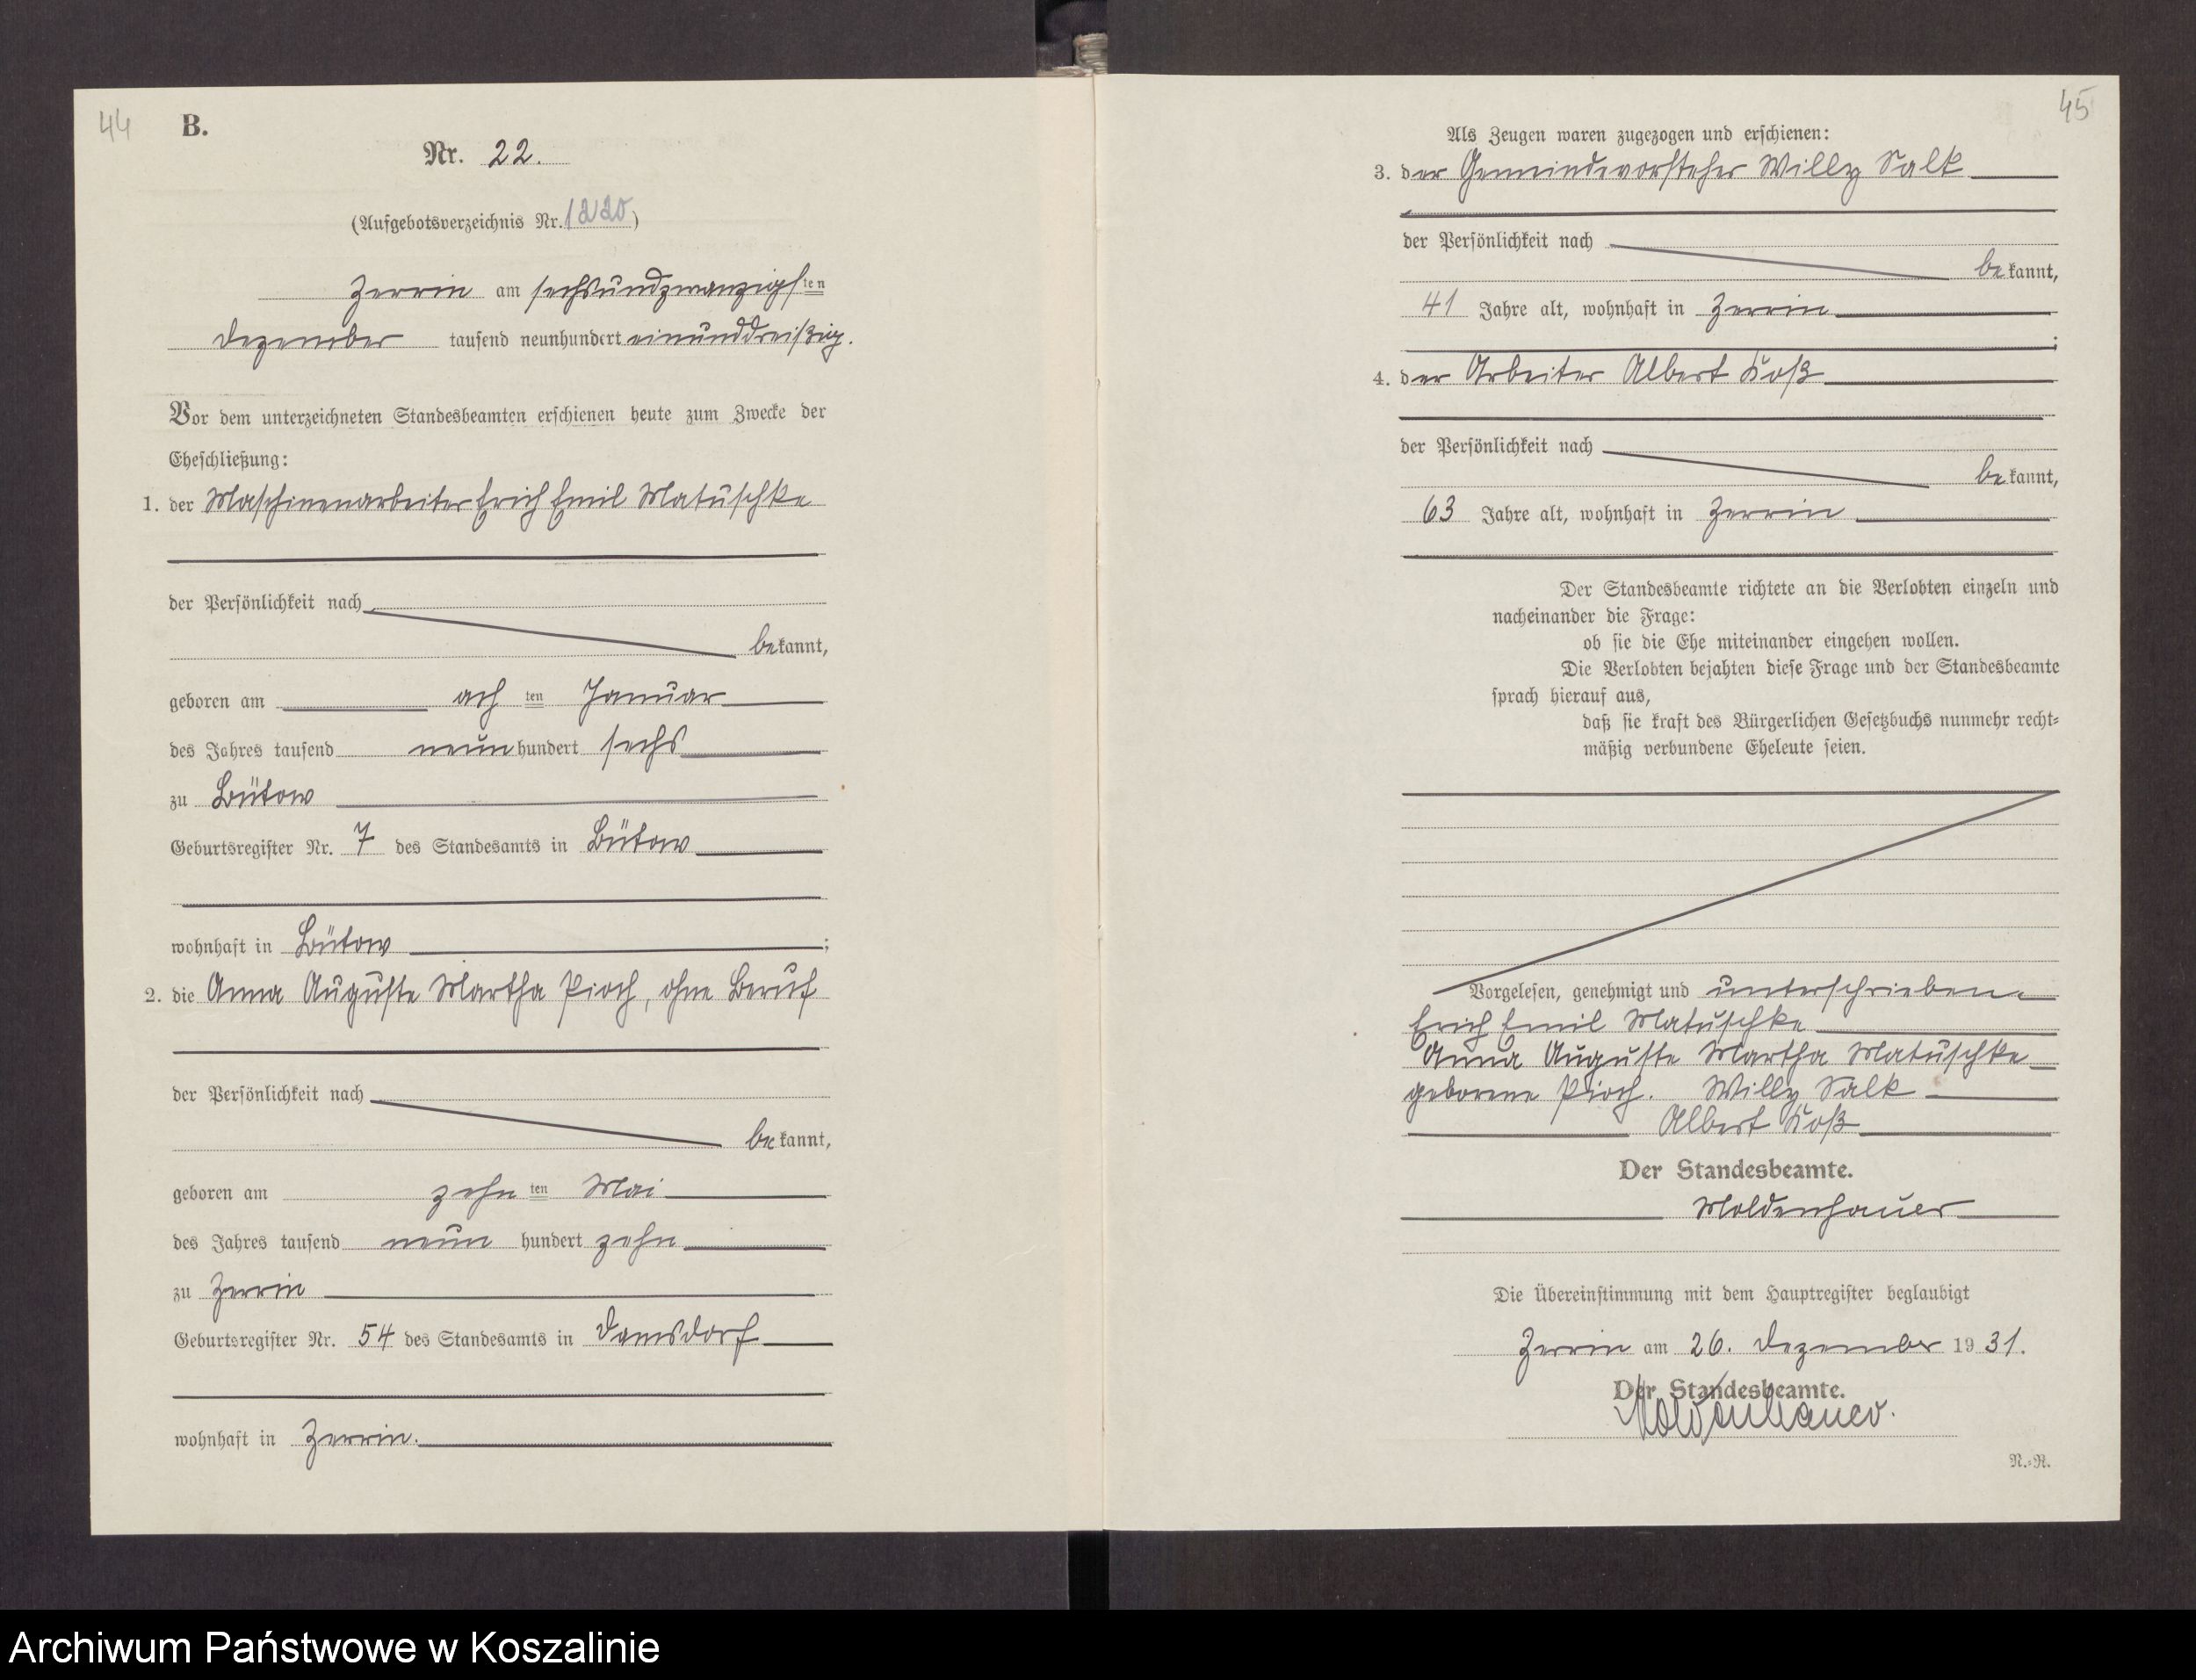 44
B.
Nr. 22.
(Aufgebotsverzeichnis Nr. 1220)
Zerrin am sechsundzwanzigsten
Dezember tausend neunhundert einunddreißig.
Vor dem unterzeichneten Standesbeamten erschienen heute zum Zwecke der
Eheschließung:
1. der Maschinenarbeiter Erich Emil Matuschke
der Persönlichkeit nach
bekannt,
geboren am achten Januar
des Jahres tausend neunhundert sechs
zu Bütow
Geburtsregister Nr. 7 des Standesamts in Bütow
wohnhaft in Bütow;
2. die Anna Auguste Martha Pioch, ohne Beruf
der Persönlichkeit nach
bekannt,
geboren am zehnten Mai
des Jahres tausend neun hundert zehn
zu Zerrin
Geburtsregister Nr. 54 des Standesamts in Damsdorf
wohnhaft in Zerrin.
45
Als Zeugen waren zugezogen und erschienen:
3. der Gemeindevorsteher Willy Salk
der Persönlichkeit nach
bekannt,
41 Jahre alt, wohnhaft in Zerrin
;
4. der Arbeiter Albert Koß
der Persönlichkeit nach
bekannt,
63 Jahre alt, wohnhaft in Zerrin
Der Standesbeamte richtete an die Verlobten einzeln und
nacheinander die Frage:
ob sie die Ehe miteinander eingehen wollen.
Die Verlobten bejahten diese Frage und der Standesbeamte
sprach hierauf aus,
daß sie kraft des Bürgerlichen Gesetzbuchs nunmehr recht-
mäßig verbundene Eheleute seien.
Vorgelesen, genehmigt und unterschrieben.
Erich Emil Matuschke
Anna Auguste Martha Matuschke
geborene Pioch. Willy Salk
Albert Koß
Der Standesbeamte.
Moldenhauer
Die Übereinstimmung mit dem Hauptregister beglaubigt
Zerrin am 26. Dezember 1931.
Der Standesbeamte.
Moldenhauer.
N.-R.
Archiwum Państwowe w Koszalinie